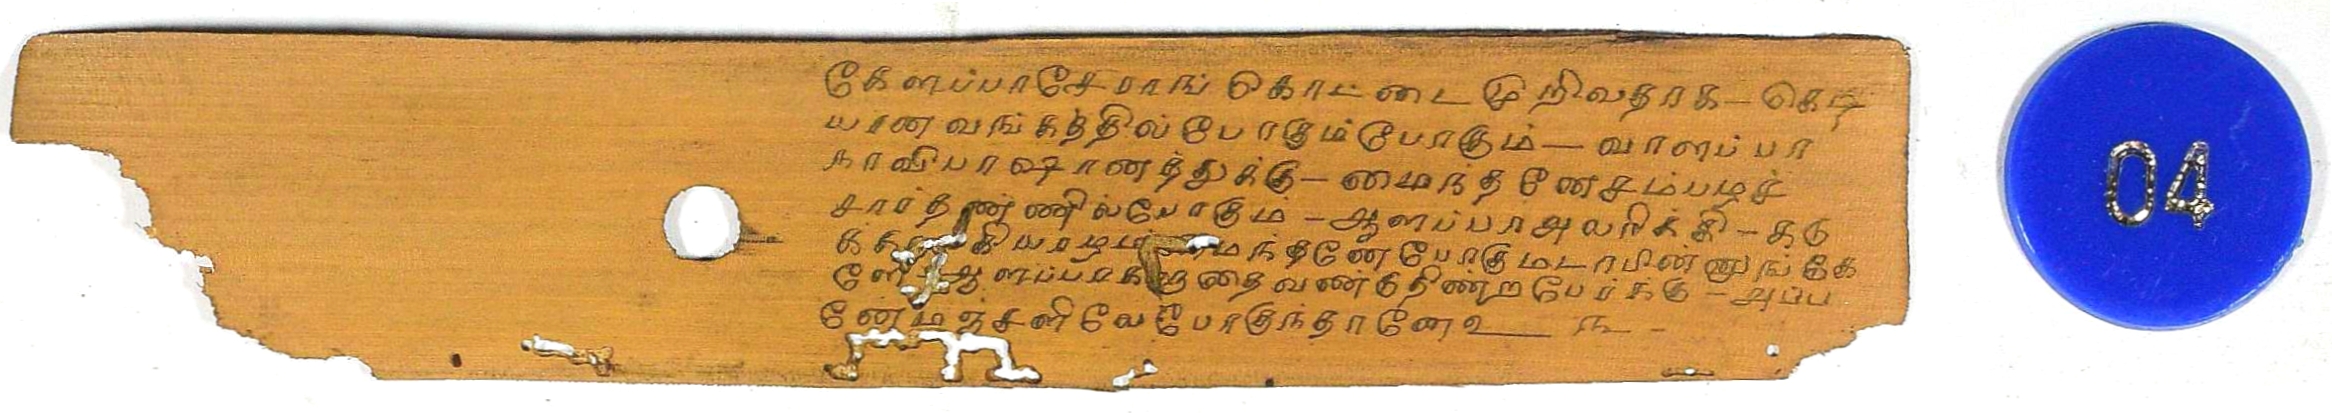 கேளப்பாசேராங் கொட்டை முறிவதாக - கெடி
யான வங்கத்தில் போகும்போகும் - வாளப்பா
நாவிபாஷாணத்துக்கு - மைந்தனேசம்பழச்
சார்தண்ணில்போகும் - ஆளப்பாஅலரிக்கி - கடு
மைந்தனேபோகுமடாபின்னுங்கே
ளே ஆளப்பாக வண்டுதின்றபேர்க்கு - அப்ப
னேமஞ்சளிலேபோகுந்தானே உ ௩ -
04